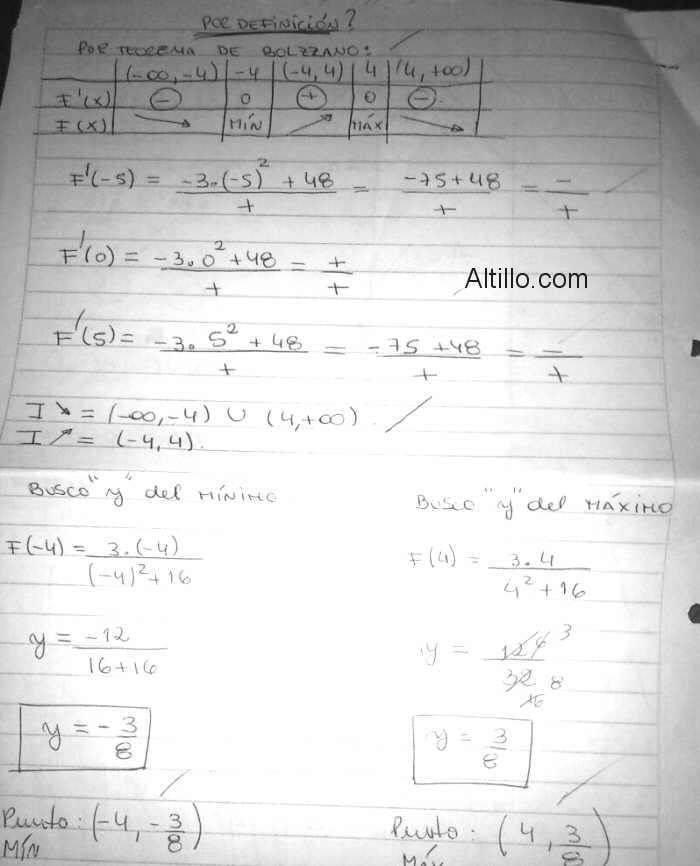 POR DEFINICIÓN?
POR TEOREMA DE BOLZZANO:
(-∞,-4) | -4 | (-4,4) | 4 | (4,+∞)
F'(x) | - | 0 | + | 0 | -
F(x) | ↘ | MÍN | ↗ | MÁX | ↘
F'(-5) = (-3.(-5)² + 48)/+ = (-75+48)/+ = -/+
F'(0) = (-3.0²+48)/+ = +/+
Altillo.com
F'(5) = (-3. 5² + 48)/+ = (-75 +48)/+ = -/+
I ↘ = (-∞,-4) ∪ (4,+∞).
I ↗ = (-4,4).
BUSCO "y" del MÍNIMO
F(-4) = 3.(-4)/((-4)²+16)
y = -12/(16+16)
y = -3/8
Punto: (-4, -3/8)
MÍN
BUSCO "y" del MÁXIMO
F(4) = 3.4/(4²+16)
y = 12 6 3/32 16 8
y = 3/8
Punto: (4, 3/8)
MÁX